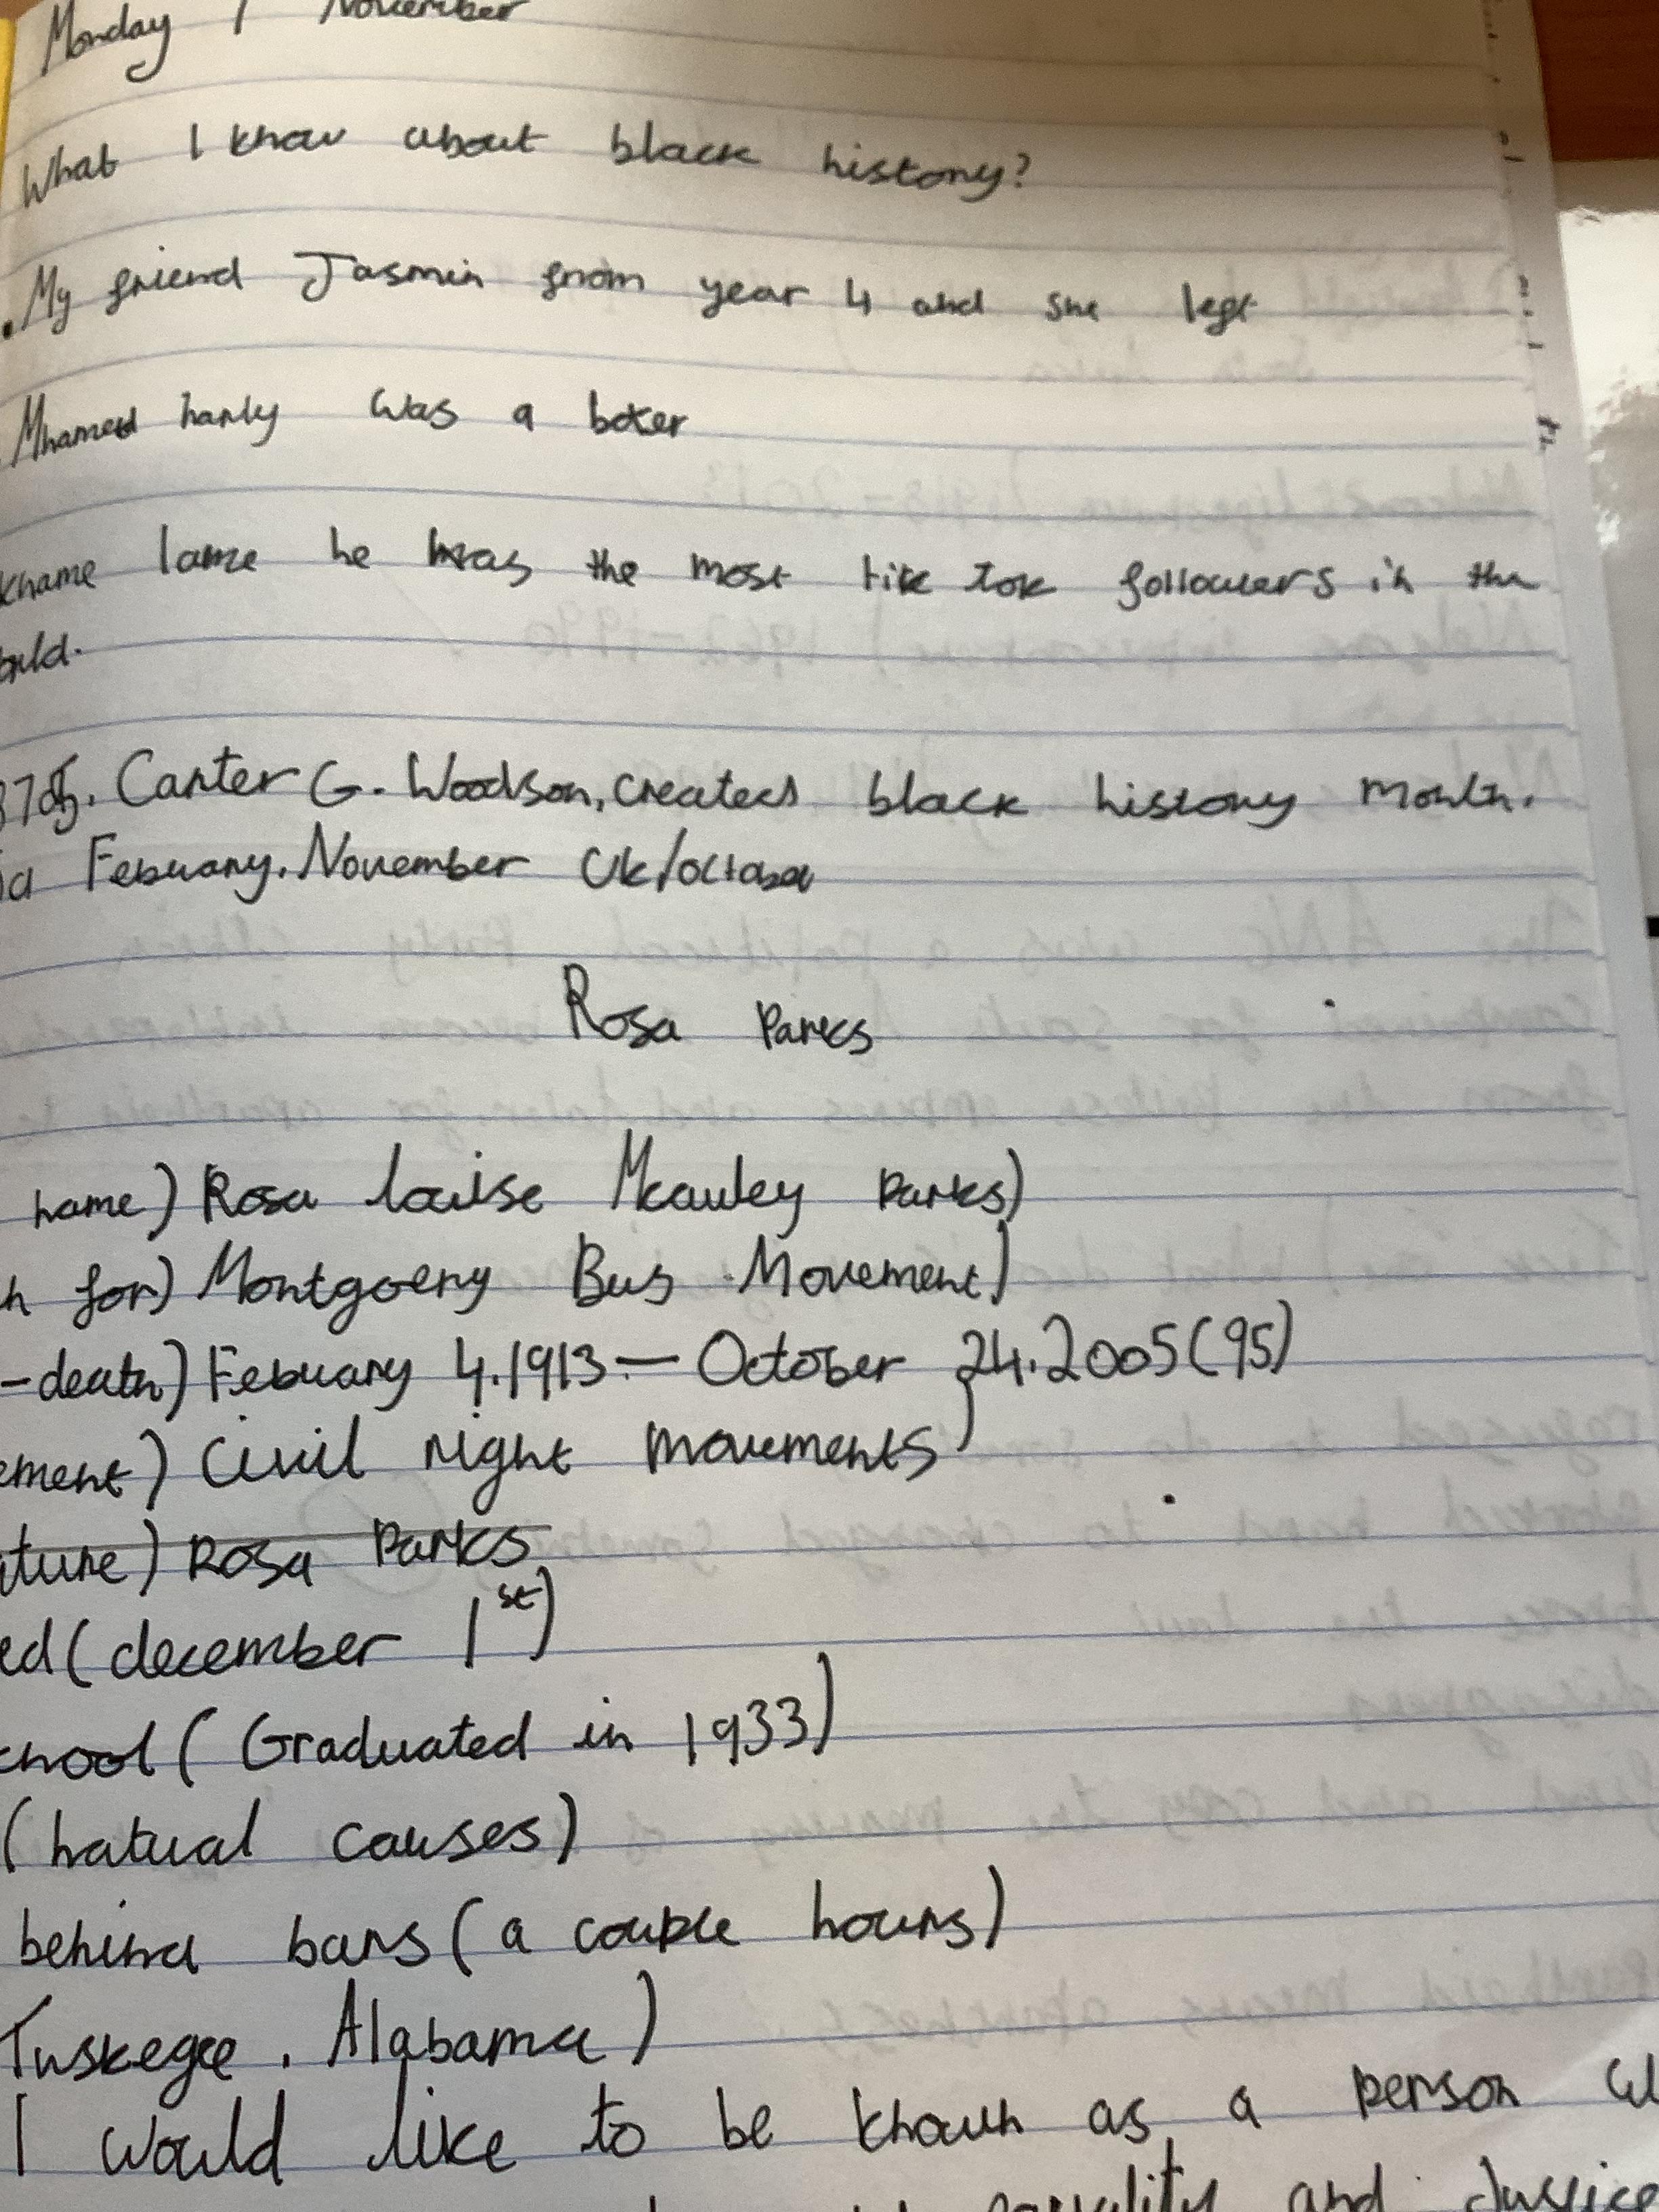 Monday 1 November
What I know about black history?
. My friend Jasmin from year 4 and she left
Mhamed harly was a boxer
khame lame he has the most tik tok followers in the
875. Carter G. Woodson, created black history month.
Febuary. November Uk/octobe
Rosa Parks
name) Rosa louise Mcauley Parks)
for) Montgoery Bus Movement)
-death) Febuary 4.1913 — October 24.2005 (95)
ement) Civil right movements)
ature) Rosa Parks
ed (december 1st)
chool (Graduated in 1933)
(hatual causes)
behind bars (a couple hours)
Tuskegee. Alabama)
I would like to be known as a person
equality and Justice